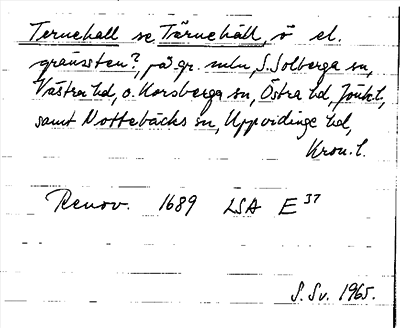 Ternehall se Tärnehäll, ö el.
gränssten?, på gr. mln, S. Solberga sn,
Västra hd, o. Korsberga sn, Östra hd, Jönk.l,
samt Nottebäcks sn, Uppvidinge hd,
Kron.l.
Renov. 1689 LSA E 37
S. Sv. 1965.